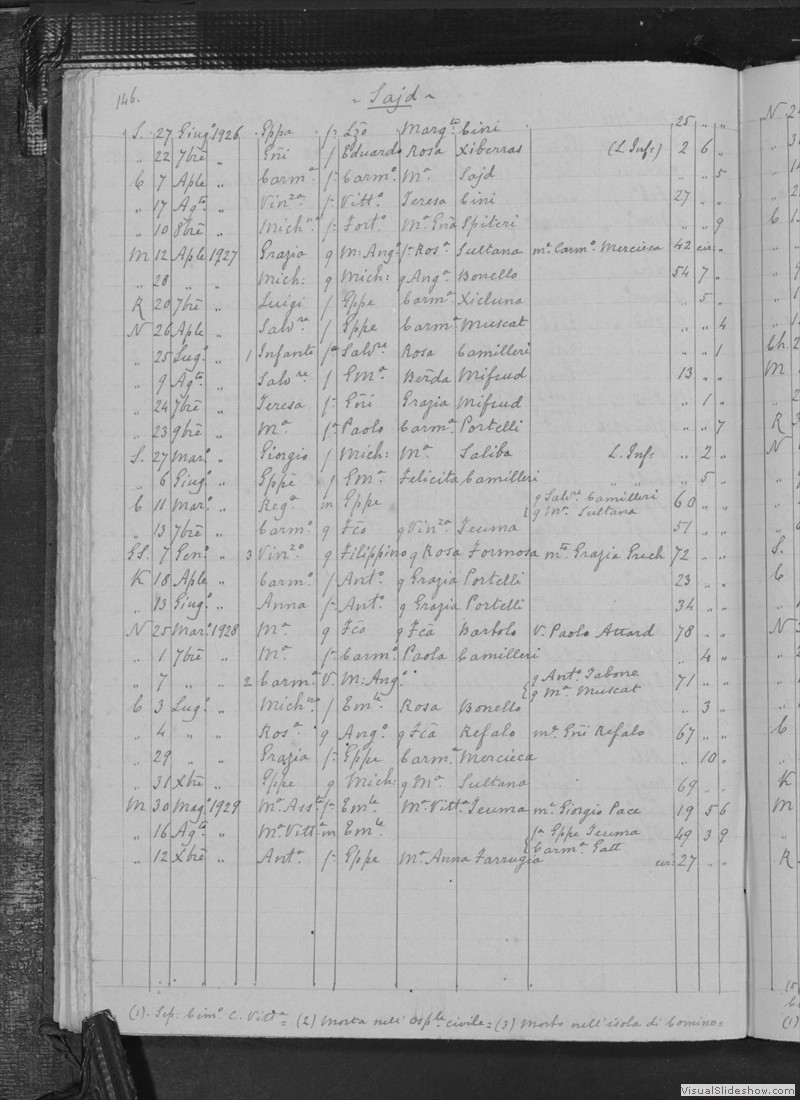 146.
~ Sajd ~
S. 27 Giugº 1926 Gppa f. Lzõ Margta. Cini 25 „ „
„ 22 7brē „ Gñi f Eduardo Rosa Xiberras (L. Inf:) 2 6 „
C 7 Aple „ Carmª f. Carmº. Mª. Sajd „ „ 5
„ 17 Agto. „ Vinzª f. Vittº. Teresa Cini 27 „ „
„ 10 8brē „ Michna f. Fortº. Mª. Gña Spiteri „ „ 9
M 12 Aple 1927 Grazia q M: Angº. f. Rosª. Sultana mº. Carmº. Mercieca 42 cir: „
„ 28 „ „ Mich: q Mich: q Angª. Bonello 54 7 „
K 20 7brē „ Luigi f Gppe Carmª. Xicluna „ 5 „
N 26 Aple „ Salvre f Gppe Carmª Muscat „ „ 4
„ 25 Lugº. „ 1 Infante fº Salvre Rosa Camilleri „ „ 1
„ 9 Agto. „ Salvre f Gmª. Berñda Mifsud 13 „ „
„ 24 7brē „ Teresa f. Gñi Grazia Mifsud „ 1 „
„ 23 9brē „ Mª f. Paolo Carmª. Portelli „ „ 7
S. 27 Marº. „ Giorgio f Mich: Mª. Saliba L. Inf: „ 2 „
„ 6 Giugº. „ Gppe f Gmª. Felicita Camilleri „ „ „ 5 „
C 11 Marº. „ Regª m Gppe { q Salvre Camilleri 60 „ „
q Mª. Sultana
„ 13 7brē „ Carmº. q Fcõ q Vinzª Teuma 51 „ „
GS. 7 Genº. „ 3 Vinzº q Filippino q Rosa Formosa mto Grazia Grech 72 „ „
K 18 Aple „ Carmº. f Antº. q Grazia Portelli 23 „ „
„ 13 Giugº. „ Anna f. Antº. q Grazia Portelli 34 „ „
N 25 Marº. 1928 Mª q Fcõ q Fcã Bartolo V. Paolo Attard 78 „ „
„ 1 7brē „ Mª. f. Carmº. Paola Camilleri „ 4 „
„ 7 „ „ 2 Carmª V. M: Angº. { q Antº. Tabone 71 „ „
q Mª. Muscat
C 3 Lugº. „ Michna f Emle. Rosa Bonello „ 3 „
„ 4 „ „ Rosª q Angº. q Fcã Refalo mº. Gñi Refalo 67 „ „
„ 29 „ „ Grazia f. Gppe Carmª Mercieca „ 10 „
„ 31 Xbrē „ Gppe q Mich: q Mª. Sultana 69 „ „
M 30 Magº 1929 Mª. Assta f. Emle Mª. Vittª. Teuma mº. Giorgio Pace 19 5 6
„ 16 Agto. „ Mª. Vittª m Emle { fª. Gppe Teuma 49 3 9
Carmª. Gatt
„ 12 Xbrē „ Antª. f. Gppe Mª. Anna Farrugia cir: 27 „ „
(1). Sep. Cimº. C. Vittª = (2) Morta nell' osple. civile = (3) Morto nell' isola di Comino =
VisualSlideshow.com